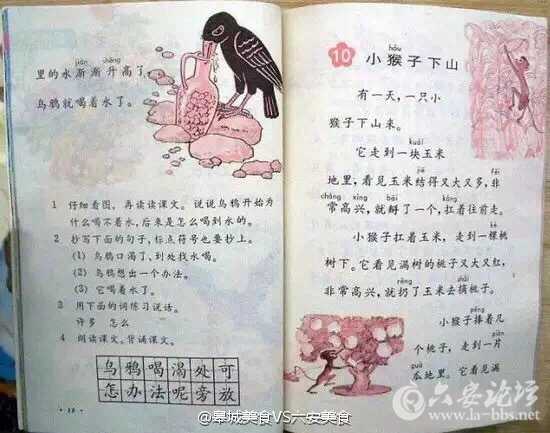 jiàn shēng
里的水渐渐升高了，
乌鸦就喝着水了。
1 仔细看图，再读读课文。说说乌鸦开始为
什么喝不着水，后来是怎么喝到水的。
2 抄写下面的句子，标点符号也要抄上。
(1) 乌鸦口渴了，到处找水喝。
(2) 乌鸦想出一个办法。
(3) 它喝着水了。
3 用下面的词练习说话。
许多 怎么
4 朗读课文。背诵课文。
乌鸦喝渴处可
怎办法呢旁放
hóu
10 小猴子下山
有一天，一只小
猴子下山来。
kuài
它走到一块玉米
jiē fēi
地里，看见玉米结得又大又多，非
cháng xìng bāi káng
常高兴，就掰了一个，扛着往前走。
小猴子扛着玉米，走到一棵桃
树下。它看见满树的桃子又大又红，
rēng zhāi
非常高兴，就扔了玉米去摘桃子。
pěng
小猴子捧着几
piàn
个桃子，走到一片
guā
瓜地里。它看见满
@皋城美食VS六安美食
六安论坛
www.la-bbs.net